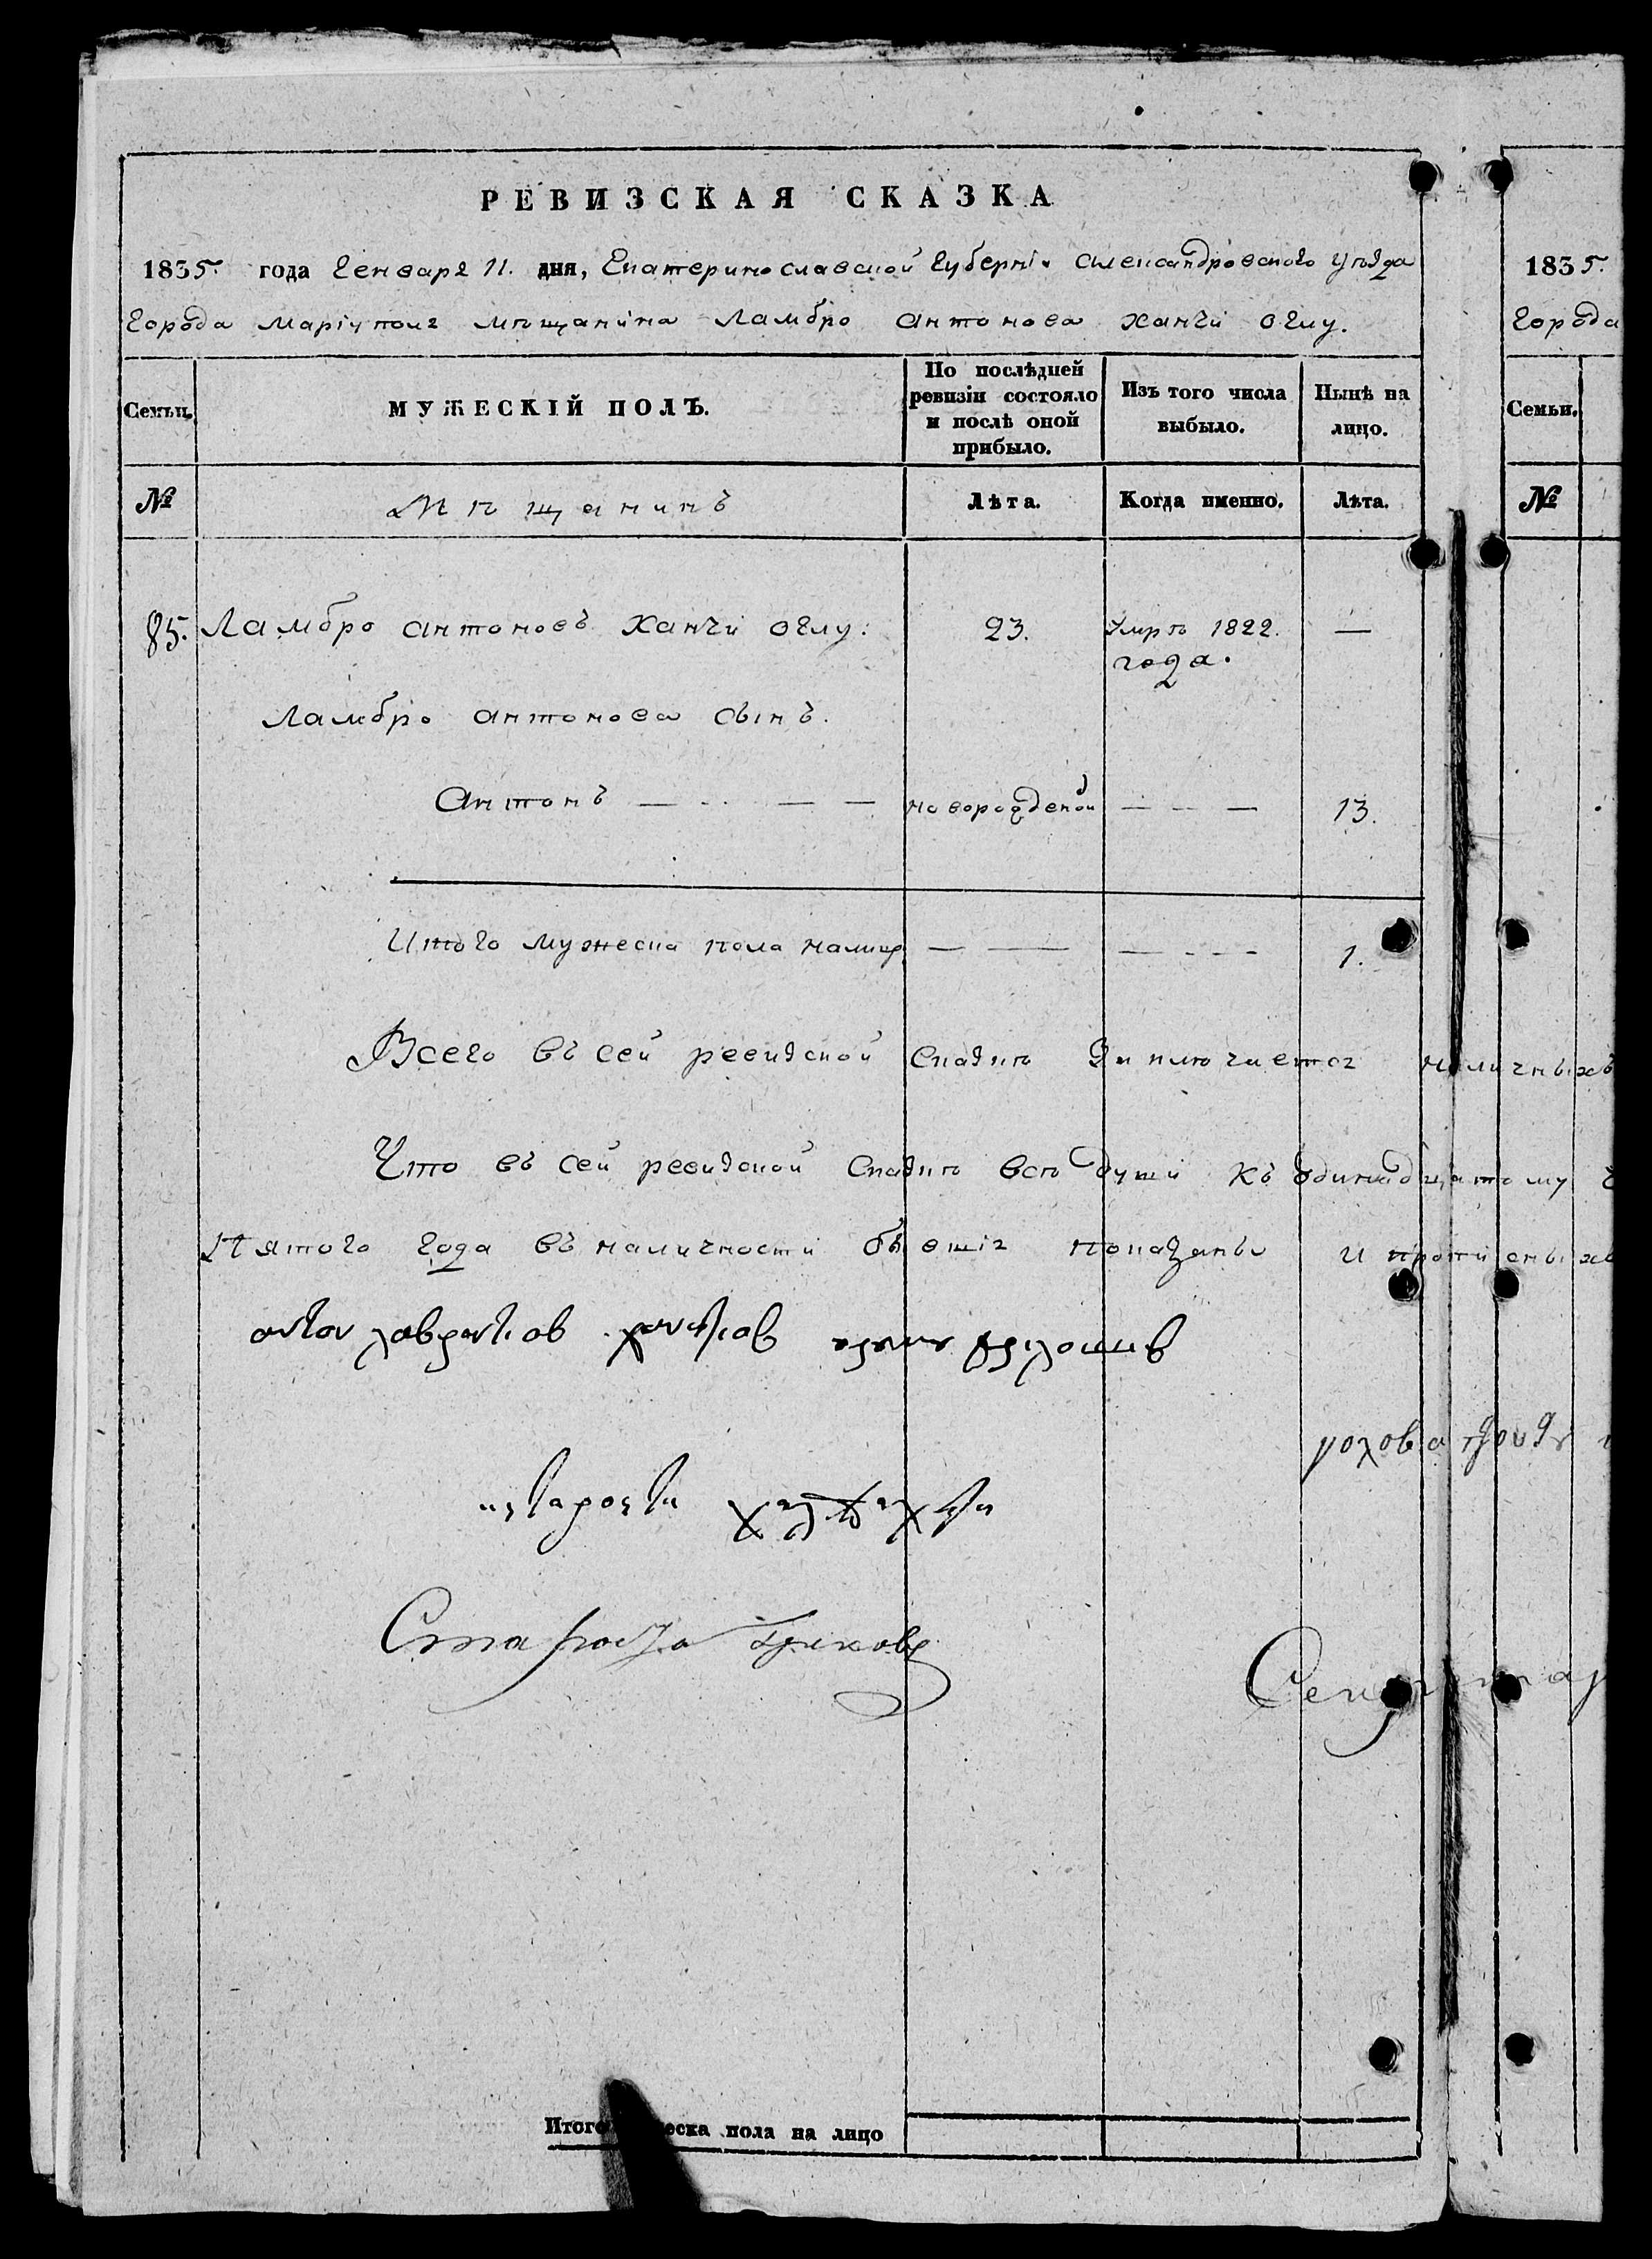 РЕВИЗСКАЯ СКАЗКА
1835. года Генваря 11. дня, Екатеринославской Губерніи Александровского уѣзда
Города Маріуполя мѣщанина Ламбро Антонова Ханчи оглу.
Семьи.
МУЖЕСКІЙ ПОЛЪ.
По послѣдней ревизіи состояло и послѣ оной прибыло.
Изъ того числа выбыло.
Нынѣ на лицо.
№
Мѣщанинъ
Лѣта.
Когда именно.
Лѣта.
85. Ламбро Антоновъ Ханчи оглу: 23. Умрѣ 1822. —
года.
Ламбро Антонова сынъ.
Антонъ — — — новорожденой — — — 13.
Итого мужеска пола налицо — — — — — 1.
Всего въ сей ревизской сказкѣ заключается наличныхъ
Что въ сей ревизской сказкѣ всѣ души къ одинадцатому
Пятого года въ наличности бывшія показаны и
Староста
Итого пола на лицо
1835.
Города
Семьи.
№